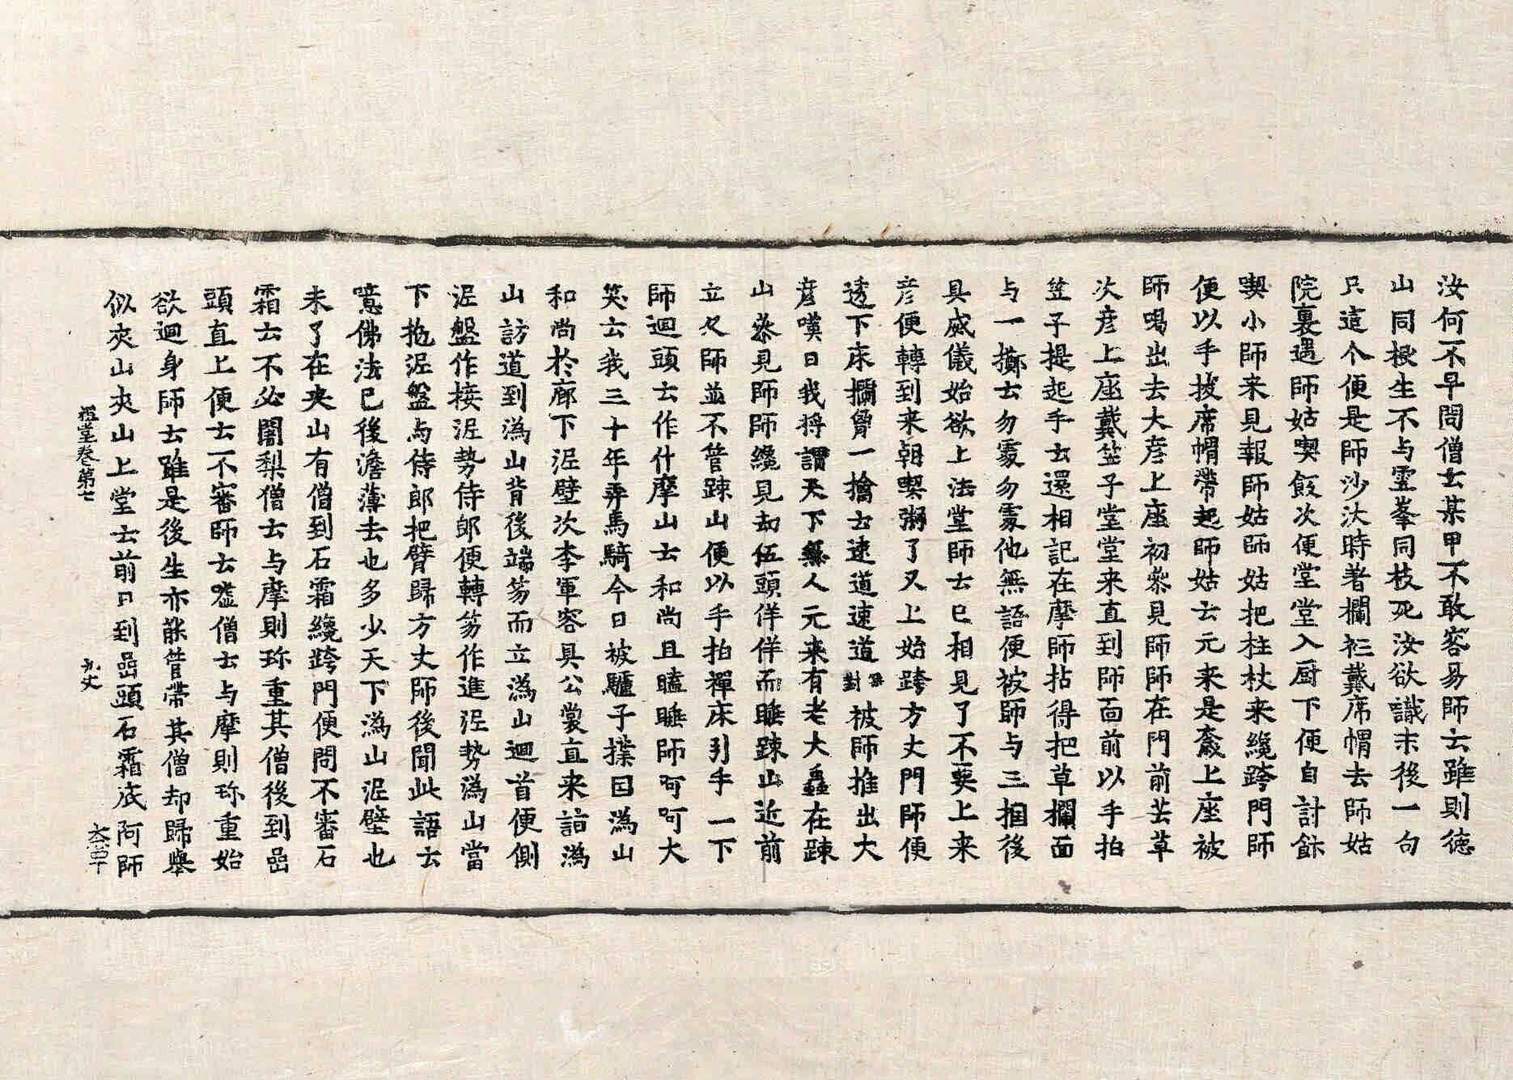 汝何不早問僧云某甲不敢容易師云雖則德
山同根生不与雪峯同枝死汝欲識末後一句
只這个便是師沙汰時著襴衫戴席帽去師姑
院裏遇師姑喫飯次便堂堂入厨下便自討飯
喫小師来見報師姑師姑把柱杖来纔跨門師
便以手拔席帽帶起師姑云元来是奯上座被
師喝出去大彦上座初叅見師師在門前芸草
次彦上座戴笠子堂堂来直到師面前以手拍
笠子提起手云還相記在摩師拈得把草攔面
与一擲云勿處勿處他無語便被師与三摑後
具威儀始欲上法堂師云已相見了不要上来
彦便轉到来朝喫粥了又上始跨方丈門師便
透下床攔胷一擒云速道速道無對被師推出大
彦嘆曰我将謂天下無人元来有老大蟲在踈
山叅見師師纔見却伍頭佯佯而睡踈山近前
立久師並不管踈山便以手拍禪床引手一下
師迴頭云作什摩山云和尚且瞌睡師呵呵大
笑云我三十年弄馬騎今日被驢子撲因溈山
和尚於廊下泥壁次李軍容具公裳直来詣溈
山訪道到溈山背後端笏而立溈山迴首便側
泥盤作接泥勢侍郎便轉笏作進泥勢溈山當
下抛泥盤与侍郎把臂歸方丈師後聞此語云
噫佛法已後澹薄去也多少天下溈山泥壁也
未了在夾山有僧到石霜纔跨門便問不審石
霜云不必闍梨僧云与摩則珎重其僧後到喦
頭直上便云不審師云噓僧云与摩則珎重始
欲迴身師云雖是後生亦能管帶其僧却歸舉
似夾山夾山上堂云前日到喦頭石霜底阿師
祖堂卷第七
九丈